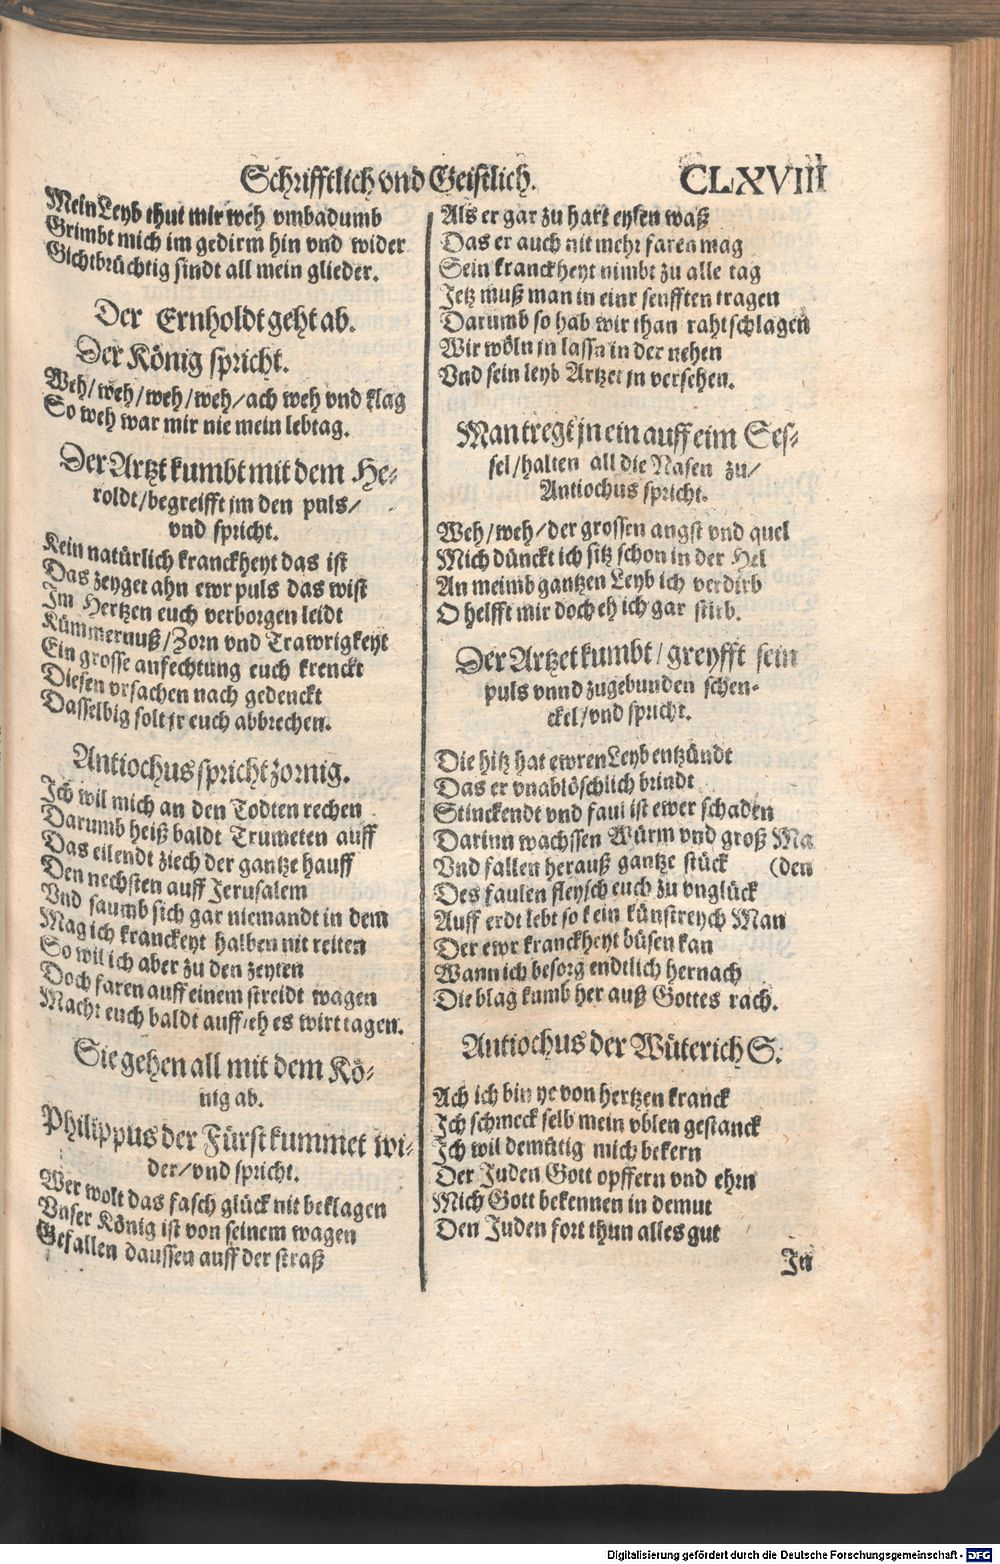 Schrifftlich vnd Geistlich. CLXVIII
Mein Leyb thut mir weh vmbadumb
Grimbt mich im gedirm hin vnd wider
Gichtbrüchtig sindt all mein glieder.
Der Ernholdt geht ab.
Der König spricht.
Weh/weh/weh/weh/ach weh vnd klag
So weh war mir nie mein lebtag.
Der Artzt kumbt mit dem He-
roldt/begreifft jm den puls/
vnd spricht.
Kein natürlich kranckheyt das ist
Das zeyget ahn ewr puls das wist
Im Hertzen euch verborgen leidt
Kümmernuß/Zorn vnd Trawrigkeyt
Ein grosse anfechtung euch krenckt
Diesen vrsachen nach gedenckt
Dasselbig solt jr euch abbrechen.
Antiochus spricht zornig.
Ich wil mich an den Todten rechen
Darumb heiß baldt Trumeten auff
Das eilendt ziech der gantze hauff
Den nechsten auff Jerusalem
Vnd saumb sich gar niemandt in dem
Mag ich kranckeyt halben nit reiten
So wil ich aber zu den zeyten
Doch faren auff einem streidt wagen
Macht euch baldt auff/eh es wirt tagen.
Sie gehen all mit dem Kö-
nig ab.
Philippus der Fürst kummet wi-
der/vnd spricht.
Wer wolt das falsch glück nit beklagen
Vnser König ist von seinem wagen
Gefallen daussen auff der straß
Als er gar zu hart eylen waß
Das er auch nit mehr faren mag
Sein kranckheyt nimbt zu alle tag
Jetz muß man in einr senfften tragen
Darumb so hab wir than rahtschlagen
Wir wöln jn lassn in der nehen
Vnd sein leyb Artzet jn versehen.
Man tregt jn ein auff eim Ses-
sel/halten all die Nasen zu/
Antiochus spricht.
Weh/weh/der grossen angst vnd quel
Mich dünckt ich sitz schon in der Hel
An meimb gantzen Leyb ich verdirb
O helfft mir doch eh ich gar stirb.
Der Artzet kumbt/greyfft sein
puls vnnd zugebunden schen-
ckel/vnd spricht.
Die hitz hat ewren Leyb entzündt
Das er vnablöschlich brindt
Stinckendt vnd faul ist ewer schaden
Darinn wachssen Würm vnd groß Ma
Vnd fallen herauß gantze stück (den
Des faulen fleysch euch zu vnglück
Auff erdt lebt so kein künstreych Man
Der ewr kranckheyt büsen kan
Wann ich besorg endtlich hernach
Die blag kumb her auß Gottes rach.
Antiochus der Wüterich S.
Ach ich bin ye von hertzen kranck
Ich schmeck selb mein vblen gestanck
Ich wil demütig mich bekern
Der Juden Gott opffern vnd ehrn
Mich Gott bekennen in demut
Den Juden fort thun alles gut
In
Digitalisierung gefördert durch die Deutsche Forschungsgemeinschaft - DFG